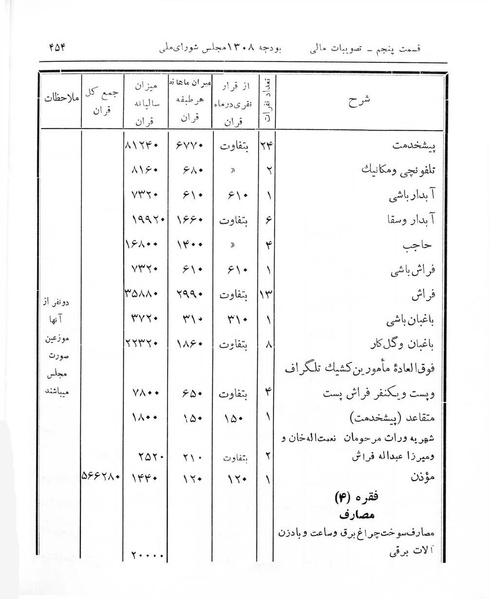 قسمت پنجم ـ تصویبات مالی    بودجه ۱۳۰۸ مجلس شورای ملی    ۴۵۴
شرح | تعداد نفرات | از قرار نفری درماه قران | میزان ماهانه هر طبقه قران | میزان سالیانه قران | جمع کل قران | ملاحظات
پیشخدمت | ۲۴ | بتفاوت | ۶۷۷۰ | ۸۱۲۴۰
تلفونچی ومکانیك | ۲ | « | ۶۸۰ | ۸۱۶۰
آبدارباشی | ۱ | ۶۱۰ | ۶۱۰ | ۷۳۲۰
آبدار وسقا | ۶ | بتفاوت | ۱۶۶۰ | ۱۹۹۲۰
حاجب | ۴ | « | ۱۴۰۰ | ۱۶۸۰۰
فراش باشی | ۱ | ۶۱۰ | ۶۱۰ | ۷۳۲۰
فراش | ۱۳ | بتفاوت | ۲۹۹۰ | ۳۵۸۸۰ | دونفر از آنها موزعین صورت مجلس میباشند
باغبان باشی | ۱ | ۳۱۰ | ۳۱۰ | ۳۷۲۰
باغبان وگل کار | ۸ | بتفاوت | ۱۸۶۰ | ۲۲۳۲۰
فوق العادهٔ مأمورین کشیك تلگراف
وپست ویکنفر فراش پست | ۴ | بتفاوت | ۶۵۰ | ۷۸۰۰
متقاعد (پیشخدمت) | ۱ | ۱۵۰ | ۱۵۰ | ۱۸۰۰
شهریه وراث مرحومان نعمت‌اله‌خان و
ومیرزا عبداله فراش | ۲ | بتفاوت | ۲۱۰ | ۲۵۲۰
مؤذن | ۱ | ۱۲۰ | ۱۲۰ | ۱۴۴۰ | ۵۶۶۲۸۰
فقره (۴)
مصارف
مصارف سوخت چراغ برق وساعت و بادزن
آلات برقی | ۲۰۰۰۰